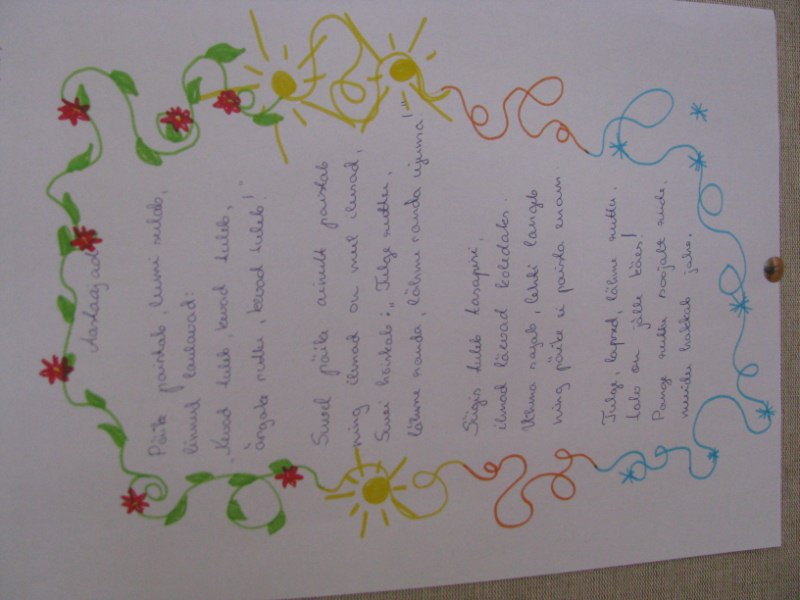 Aastaajad
Päike paistab, lumi sulab,
linnud laulavad:
"Kevad tuleb, kevad tuleb,
ärgake ruttu, kevad tuleb!"
Suvel päike ainult paistab
ning ilmad on meil ilusad,
Suvi hõiskab: „Tulge ruttu,
lähme randa, lähme randa ujuma!"
Sügis tuleb tasapisi,
ilmad lähevad koledaks.
Vihma sajab, lehti langeb
ning päike ei paista enam.
Tulge, lapsed, lähme ruttu,
talv on jälle käes!
Pange ruttu soojalt riide,
muidu hakkab jahe.